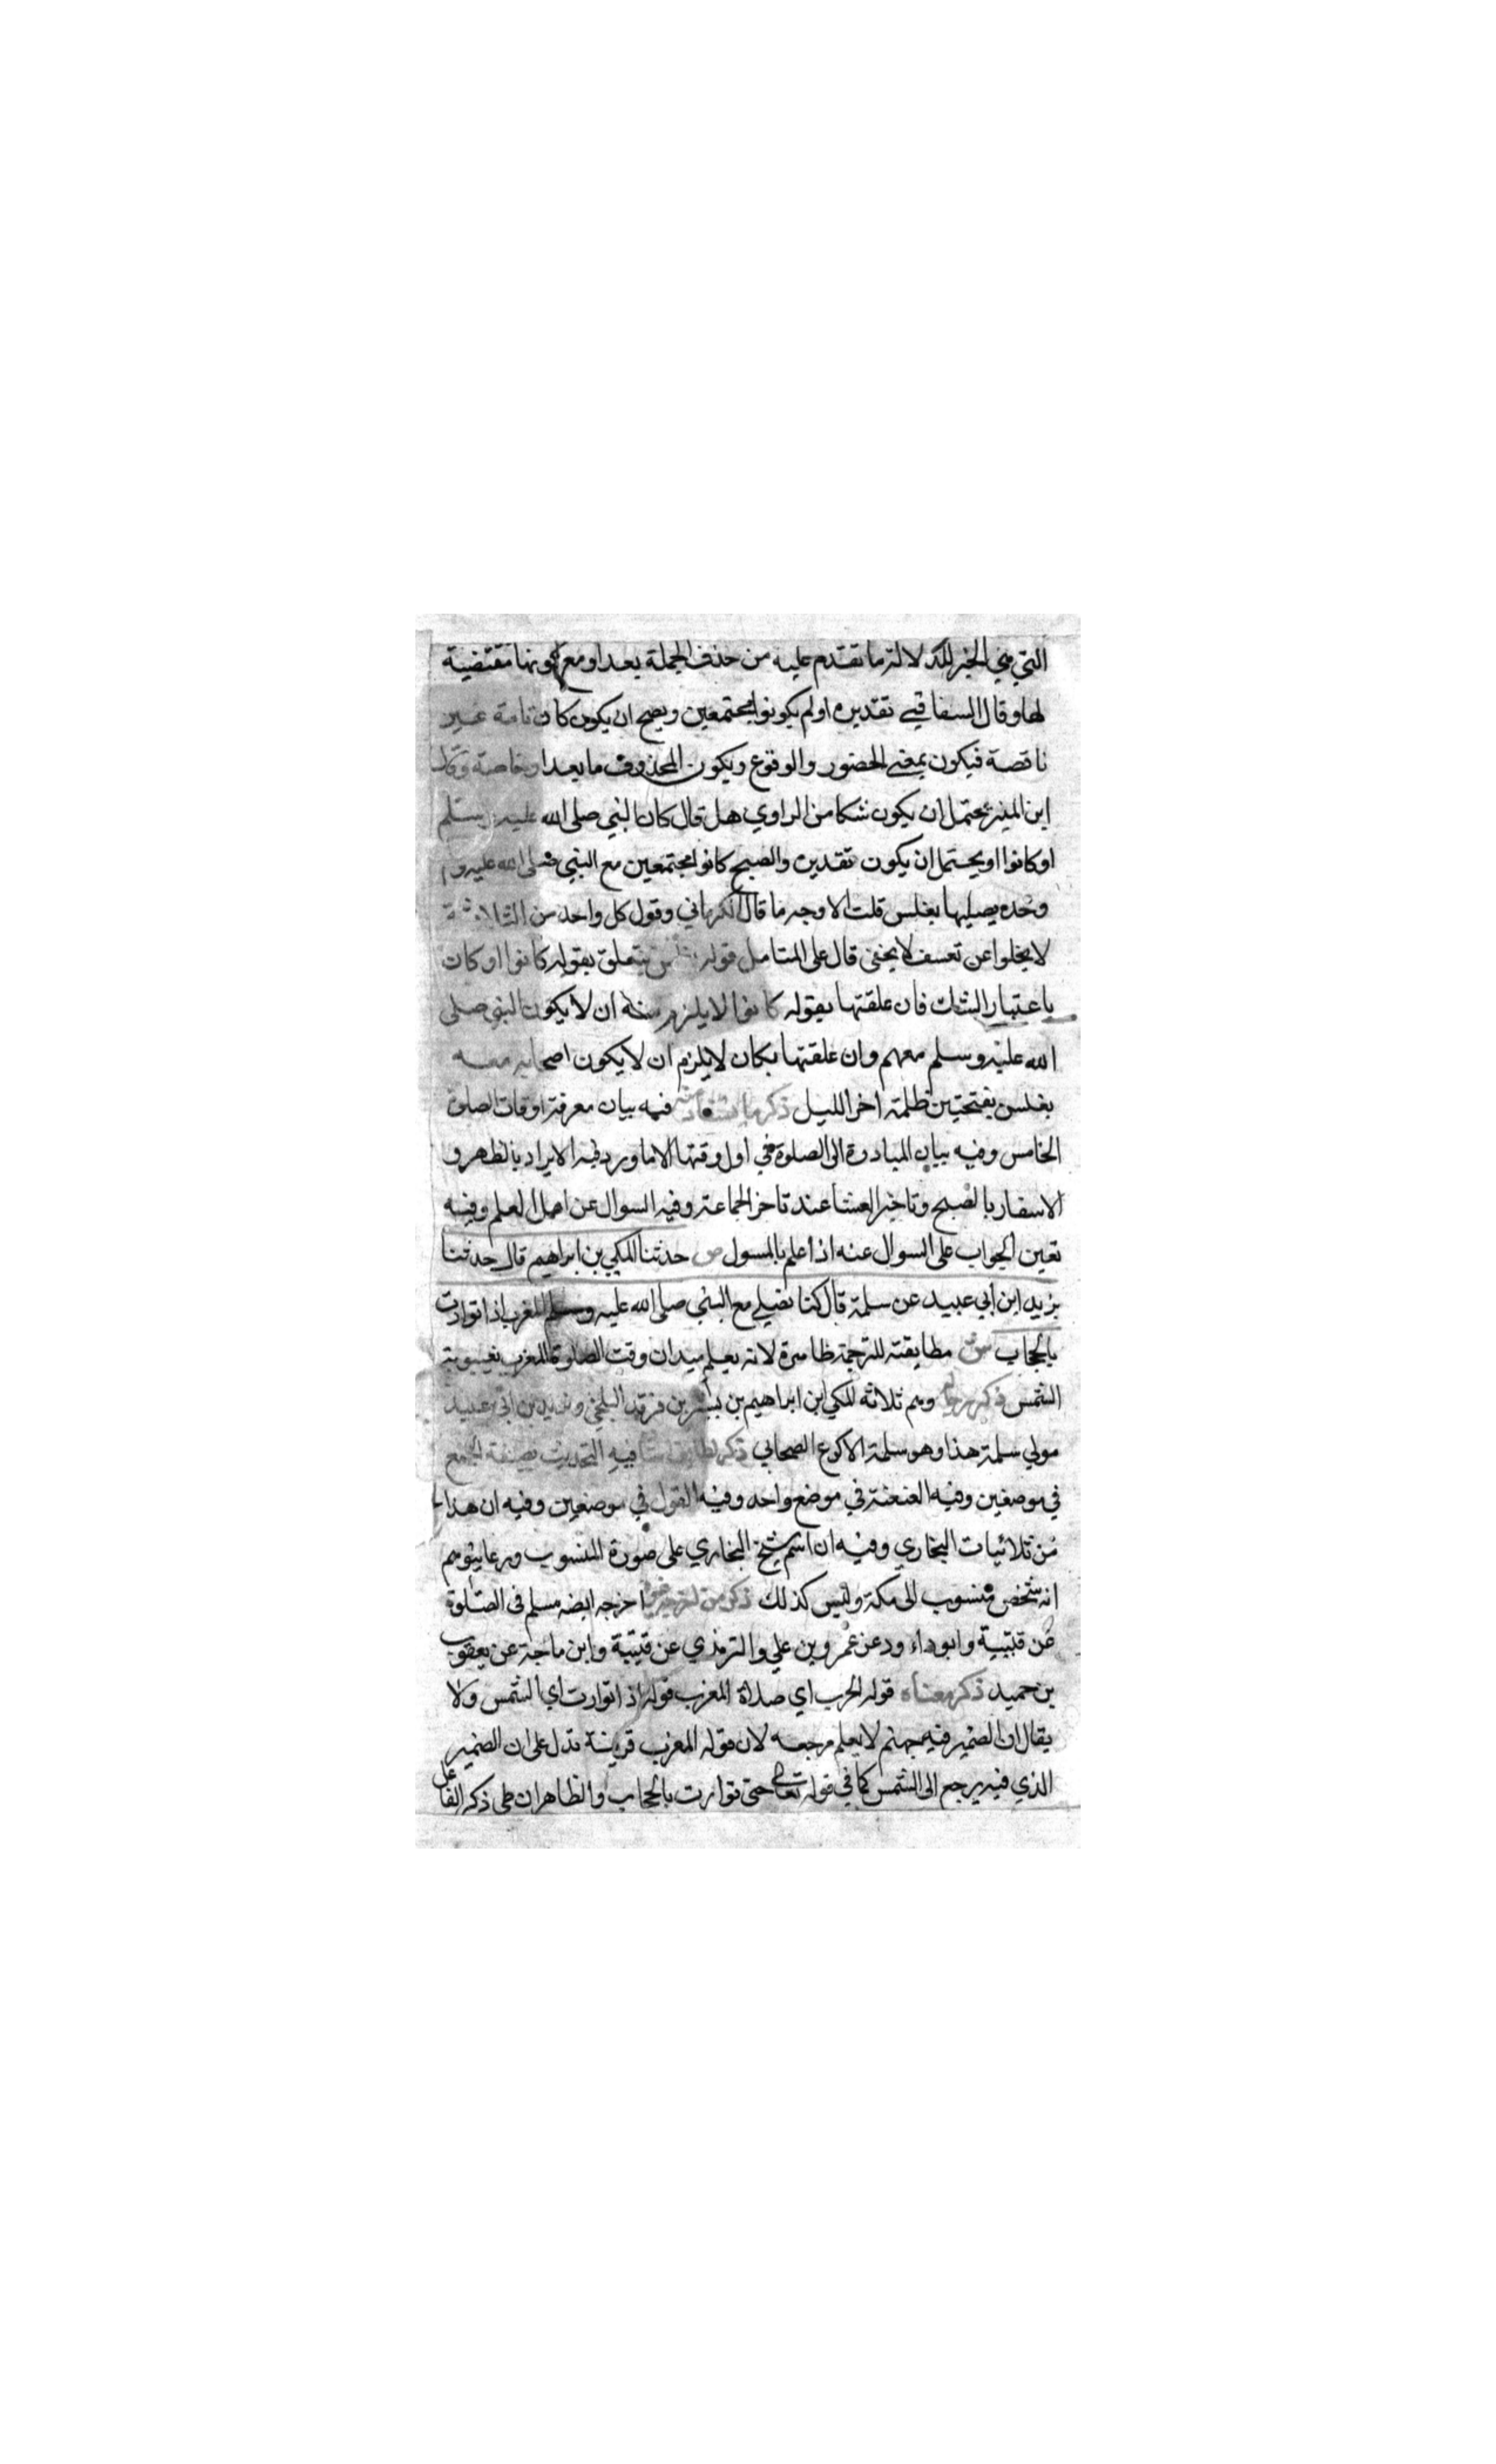 التي هي الخبر للدلالة ما تقدم عليه من حذف الجملة بعد او مع كونها مقتضية
لها وقال السفاقسي تقديره او لم يكونوا مجتمعين ويصح ان يكون كان تامة غير
ناقصة فيكون بمعنى الحضور والوقوع ويكون المحذوف ما بعد او خاصة وقال
ابن المنير يحتمل ان يكون شكا من الراوي هل قال كان النبي صلى الله عليه وسلم
او كانوا او يحتمل ان يكون تقديره والصبح كانوا مجتمعين مع النبي صلى الله عليه وم
وحده يصليها بغلس قلت الاوجه ما قال الكرماني وقول كل واحد من الثلاثة
لا يخلوا عن تعسف لا يخفى قال على المتامل قوله بغلس يتعلق بقوله كانوا او كان
باعتبار الشك فان علقتها بقوله كانوا لا يلزم منه ان لا يكون النبي صلى
الله عليه وسلم معهم وان علقتها بكان لا يلزم ان لا يكون اصحابه معه
بغلس بفتحتين ظلمة اخر الليل ذكر ما يستفاد منه فيه بيان معرفة اوقات الصلوة
الخامس وفيه بيان المبادرة الى الصلوة في اول وقتها الا ما ورد فيه الابراد بالظهر و
الاسفار بالصبح وتاخير العشا عند تاخر الجماعة وفيه السوال عن اهل العلم وفيه
تعين الجواب على السوال عنه اذا علم بالمسول ص حدثنا المكي بن ابراهيم قال حدثنا
يزيد ابن ابي عبيد عن سلمة قال كنا نصلي مع النبي صلى الله عليه وسلم المغرب اذا توارت
بالحجاب ش مطابقته للترجمة ظاهرة لانه يعلم منه ان وقت الصلوة المغرب بغيبوبة
الشمس ذكر رجاله وهم ثلاثة المكي ابن ابراهيم بن بشر بن فرقد البلخي ويزيد بن ابي عبيد
مولي سلمة هذا وهو سلمة الاكوع الصحابي ذكر لطايف اسناده فيه التحديث بصيغة الجمع
في موضعين وفيه العنعنة في موضع واحد وفيه القول في موضعين وفيه ان هذا
من ثلاثيات البخاري وفيه ان اسم شيخ البخاري على صورة المنسوب وربما يتوهم
انه شخص منسوب الى مكة وليس كذلك ذكر من اخرجه غيره اخرجه ايضه مسلم فى الصلوة
عن قتيبة وابو داء ود عن عمرو بن علي والترمذي عن قتيبة وابن ماجة عن يعقوب
بن حميد ذكر معناه قوله الحرب اي صلاة المغرب قوله اذا توارت اي الشمس ولا
يقال ان الضمير فيه مبهم لا يعلم مرجعه لان قوله المغرب قرينة تدل على ان الضمير
الذي فيه يرجع الى الشمس كما في قوله تعالى حتى توارت بالحجاب والظاهر ان طى ذكر الفاعل